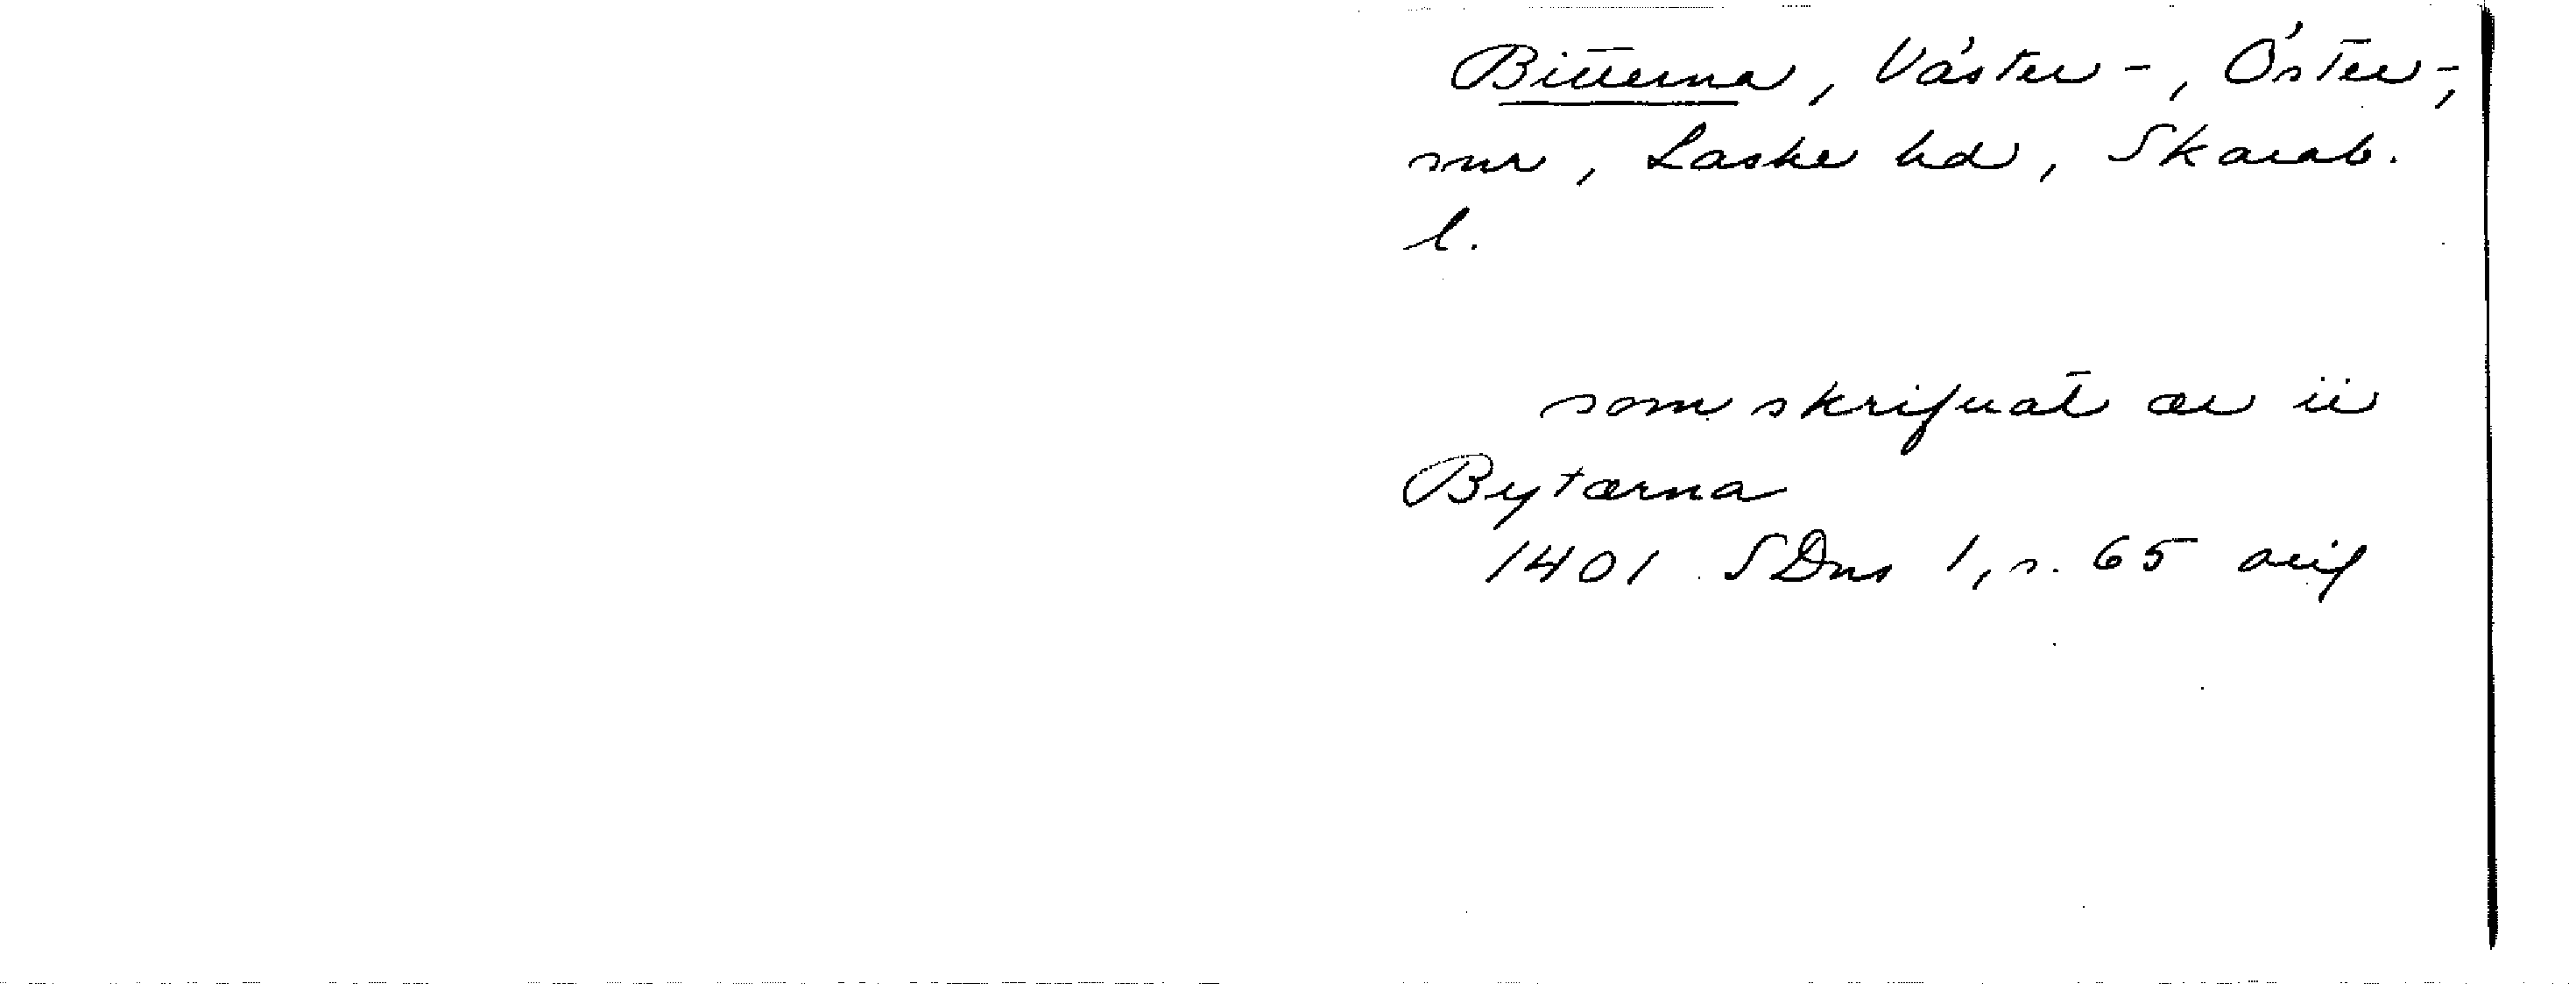 Bitterna, Väster-, Öster-,
snr, Laske hd, Skarab.
l.
som skrifuat ær ii
Bytærna
1401 SDns 1, s. 65 avig